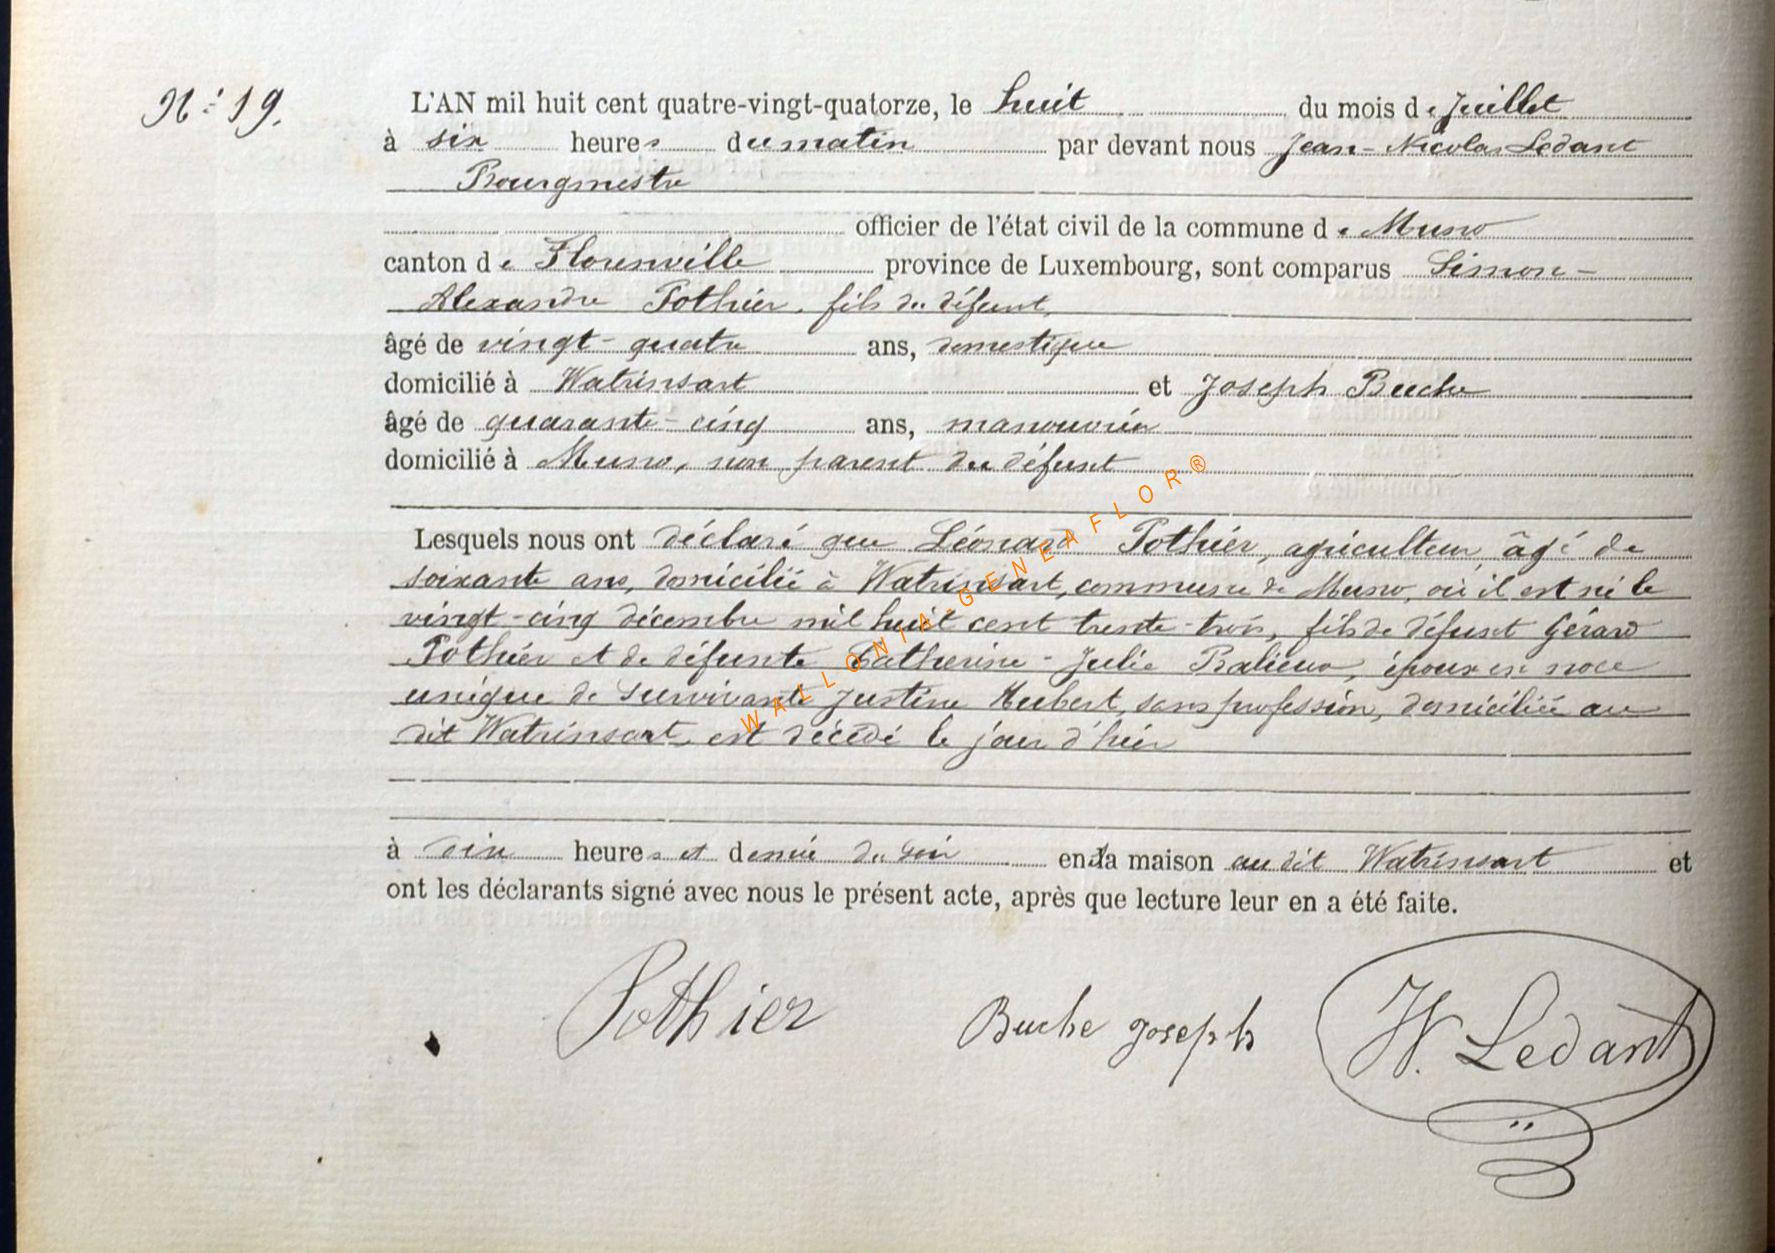 N° 19.
L'AN mil huit cent quatre-vingt-quatorze, le huit du mois de Juillet
à six heures du matin par devant nous Jean-Nicolas Ledant
Bourgmestre
officier de l'état civil de la commune de Muno
canton de Florenville province de Luxembourg, sont comparus Simon-
Alexandre Pothier, fils du défunt,
âgé de vingt-quatre ans, domestique
domicilié à Watrinsart et Joseph Buche
âgé de quarante-cinq ans, manouvrier
domicilié à Muno, non parent du défunt
Lesquels nous ont déclaré que Léonard Pothier, agriculteur, âgé de
soixante ans, domicilié à Watrinsart, commune de Muno, où il est né le
vingt-cinq décembre mil huit cent trente-trois, fils de défunt Gérard
Pothier et de défunte Catherine-Julie Balieux, époux en noce
unique de survivante Justine Hubert, sans profession, domiciliée au
dit Watrinsart, est décédé le jour d'hier
à dix heures et demie du soir en la maison au dit Watrinsart et
ont les déclarants signé avec nous le présent acte, après que lecture leur en a été faite.
Pothier Buche Joseph N. Ledant
WALLONIA-GENEAFLOR®